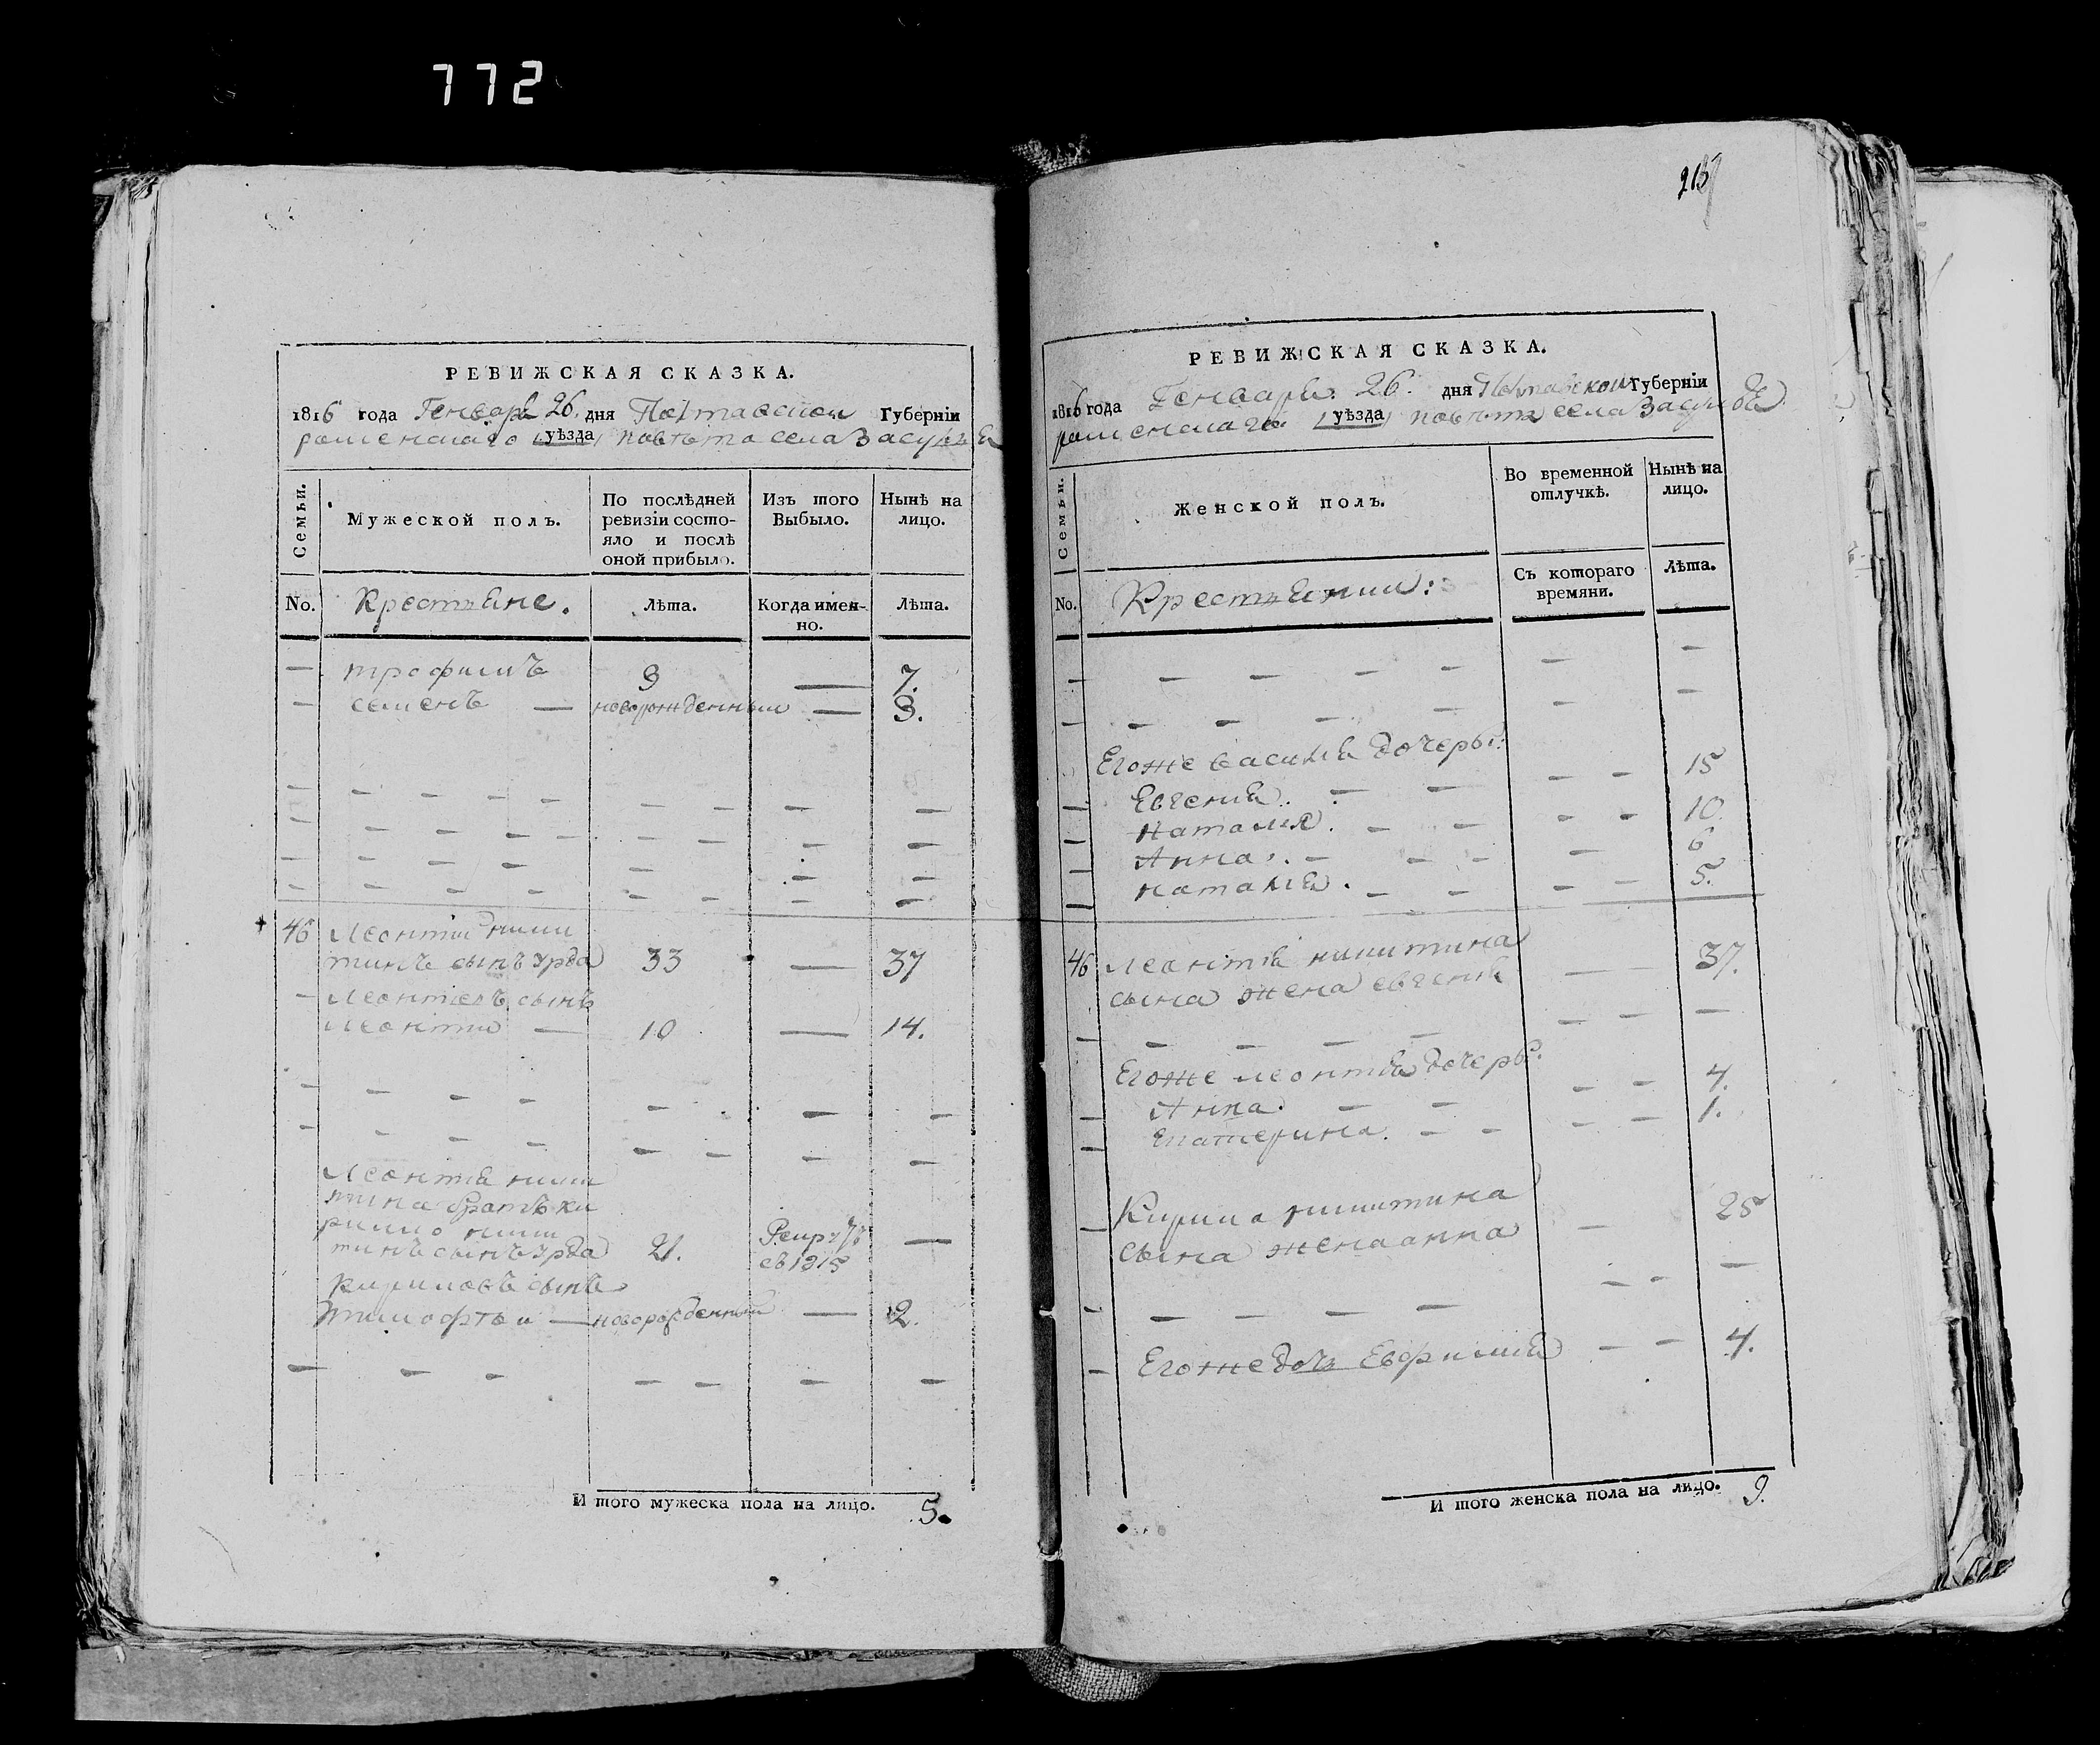 772
РЕВИЖСКАЯ СКАЗКА.
1816 года Генваря 26. дня Полтавской Губерніи
роменскаго уѣзда повѣта села Засулья
Семьи.
Мужеской полъ.
По послѣдней ревизіи состо-
яло и послѣ
оной прибыло.
Изъ того
Выбыло.
Нынѣ на
лицо.
No.
Крестьяне.
Лѣта.
Когда имен-
но.
Лѣта.
— трофимъ 3 — 7.
— семенъ — новорожденный — 3.
46 Леонтий ники
тинъ сынъ Урда 33 — 37
— Леонтіевъ сынъ
Леонтий — 10 — 14.
Леонтія ники
тина братъ ки
рило ники
тинъ сынъ Урда 21. —
въ 1815
Кириловъ сынъ
Тимофѣй — новорожденный — 2.
И того мужеска пола на лицо. 5.
РЕВИЖСКАЯ СКАЗКА.
1816 года Генваря 26. дня Полтавской Губерніи
роменскаго уѣзда повѣта села Засулья
Семьи.
Женской полъ.
Во временной
отлучкѣ.
Нынѣ на
лицо.
No.
Крестьянки:
Съ котораго
времяни.
Лѣта.
Егоже василія дочеры:
Евгенія. — — 15
Наталія. — — 10.
Анна. — — 6
наталія. — — 5.
46 Леонтія никитина
сына жена евгенія — — 37.
Егоже леонтія дочеры:
Анна. — — 4.
Екатерина. — — 1.
Кирила никитина
сына жена анна — 25
Егоже дочь Евфимія — — 4.
И того женска пола на лицо. 9.